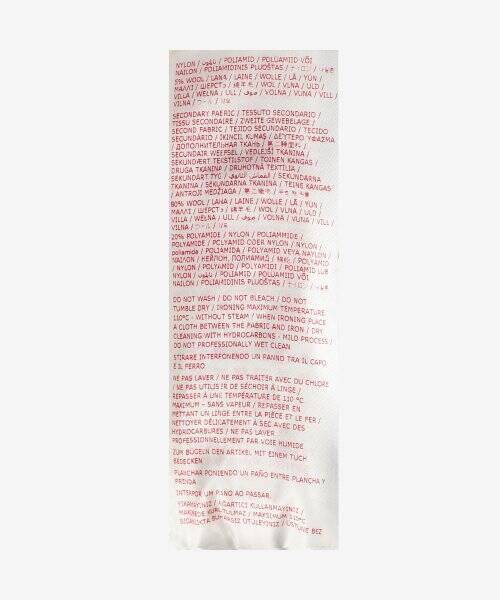 NYLON / نايلون / POLIAMID / POLÜAMIID VÕI
NAILON / POLIAMIDINIS PLUOŠTAS / ナイロン /
5% WOOL / LANA / LAINE / WOLLE / LÃ / YÜN /
ΜΑΛΛΙ / ШЕРСТЬ / 绵羊毛 / WOL / VLNA / ULD /
VILLA / WEŁNA / ULL / صوف / VOLNA / VUNA / VILL /
VILNA / ウール / 모
SECONDARY FABRIC / TESSUTO SECONDARIO /
TISSU SECONDAIRE / ZWEITE GEWEBELAGE /
SECOND FABRIC / TEJIDO SECUNDARIO / TECIDO
SECUNDÁRIO / İKINCIL KUMAŞ / ΔΕΥΤΕΡΟ ΥΦΑΣΜΑ
/ ДОПОЛНИТЕЛЬНАЯ ТКАНЬ / 第二种面料 /
SECUNDAIR WEEFSEL / VEDLEJŠÍ TKANINA /
SEKUNDÆRT TEKSTILSTOF / TOINEN KANGAS /
DRUGA TKANINA / DRUHOTNÁ TEXTÍLIA /
SEKUNDÄRT TYG / القماش الثانوي / SEKUNDARNA
TKANINA / SEKUNDARNA TKANINA / TEINE KANGAS
/ ANTROJI MEDŽIAGA /
80% WOOL / LANA / LAINE / WOLLE / LÃ / YÜN /
ΜΑΛΛΙ / ШЕРСТЬ / 绵羊毛 / WOL / VLNA / ULD /
VILLA / WEŁNA / ULL / صوف / VOLNA / VUNA / VILL /
VILNA / ウール / 모
20% POLYAMIDE / NYLON / POLIAMMIDE /
POLYAMIDE / POLYAMID ODER NYLON / NYLON /
poliamida / POLIAMIDA / POLYAMID VEYA NAYLON /
ΝΑΙΛΟΝ / НЕЙЛОН, ПОЛИАМИД / 锦纶 / POLYAMID
/ NYLON / POLYAMID / POLYAMIDI / POLIAMID LUB
NYLON / نايلون / POLIAMID / POLÜAMIID VÕI
NAILON / POLIAMIDINIS PLUOŠTAS / ナイロン /
DO NOT WASH / DO NOT BLEACH / DO NOT
TUMBLE DRY / IRONING MAXIMUM TEMPERATURE
110°C - WITHOUT STEAM / WHEN IRONING PLACE
A CLOTH BETWEEN THE FABRIC AND IRON / DRY
CLEANING WITH HYDROCARBONS - MILD PROCESS /
DO NOT PROFESSIONALLY WET CLEAN
STIRARE INTERPONENDO UN PANNO TRA IL CAPO
E IL FERRO
NE PAS LAVER / NE PAS TRAITER AVEC DU CHLORE
/ NE PAS UTILISER DE SÉCHOIR À LINGE /
REPASSER À UNE TEMPÉRATURE DE 110 °C
MAXIMUM – SANS VAPEUR / REPASSER EN
METTANT UN LINGE ENTRE LA PIÈCE ET LE FER /
NETTOYER DÉLICATEMENT À SEC AVEC DES
HYDROCARBURES / NE PAS LAVER
PROFESSIONNELLEMENT PAR VOIE HUMIDE
ZUM BÜGELN DEN ARTIKEL MIT EINEM TUCH
BEDECKEN
PLANCHAR PONIENDO UN PAÑO ENTRE PLANCHA Y
PRENDA
INTERPOR UM PANO AO PASSAR.
YIKAMAYINIZ / AĞARTICI KULLANMAYINIZ /
MAKİNEDE KURUTULMAZ / MAKSIMUM 110°C
SICAKLIKTA BUHARSIZ ÜTÜLEYINIZ / ÜSTÜNE BEZ